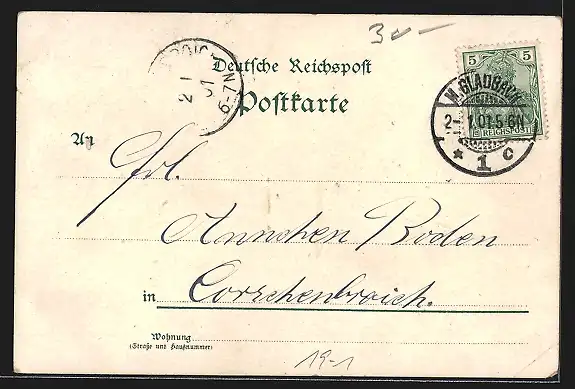 3 --
Deutsche Reichspost
Postkarte
5 5
REICHSPOST
M. GLADBACH
2 1 01 5-6N
* 1 c
2 1 01
6-7N
An
Frl.
Annchen Boden
in Corschenbroich.
Wohnung
(Straße und Hausnummer)
19-1